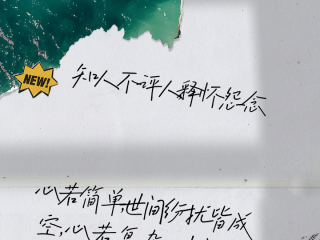 NEW!
知人不评人释怀怨念
心若简单,世间纷扰皆成
空,心若复杂